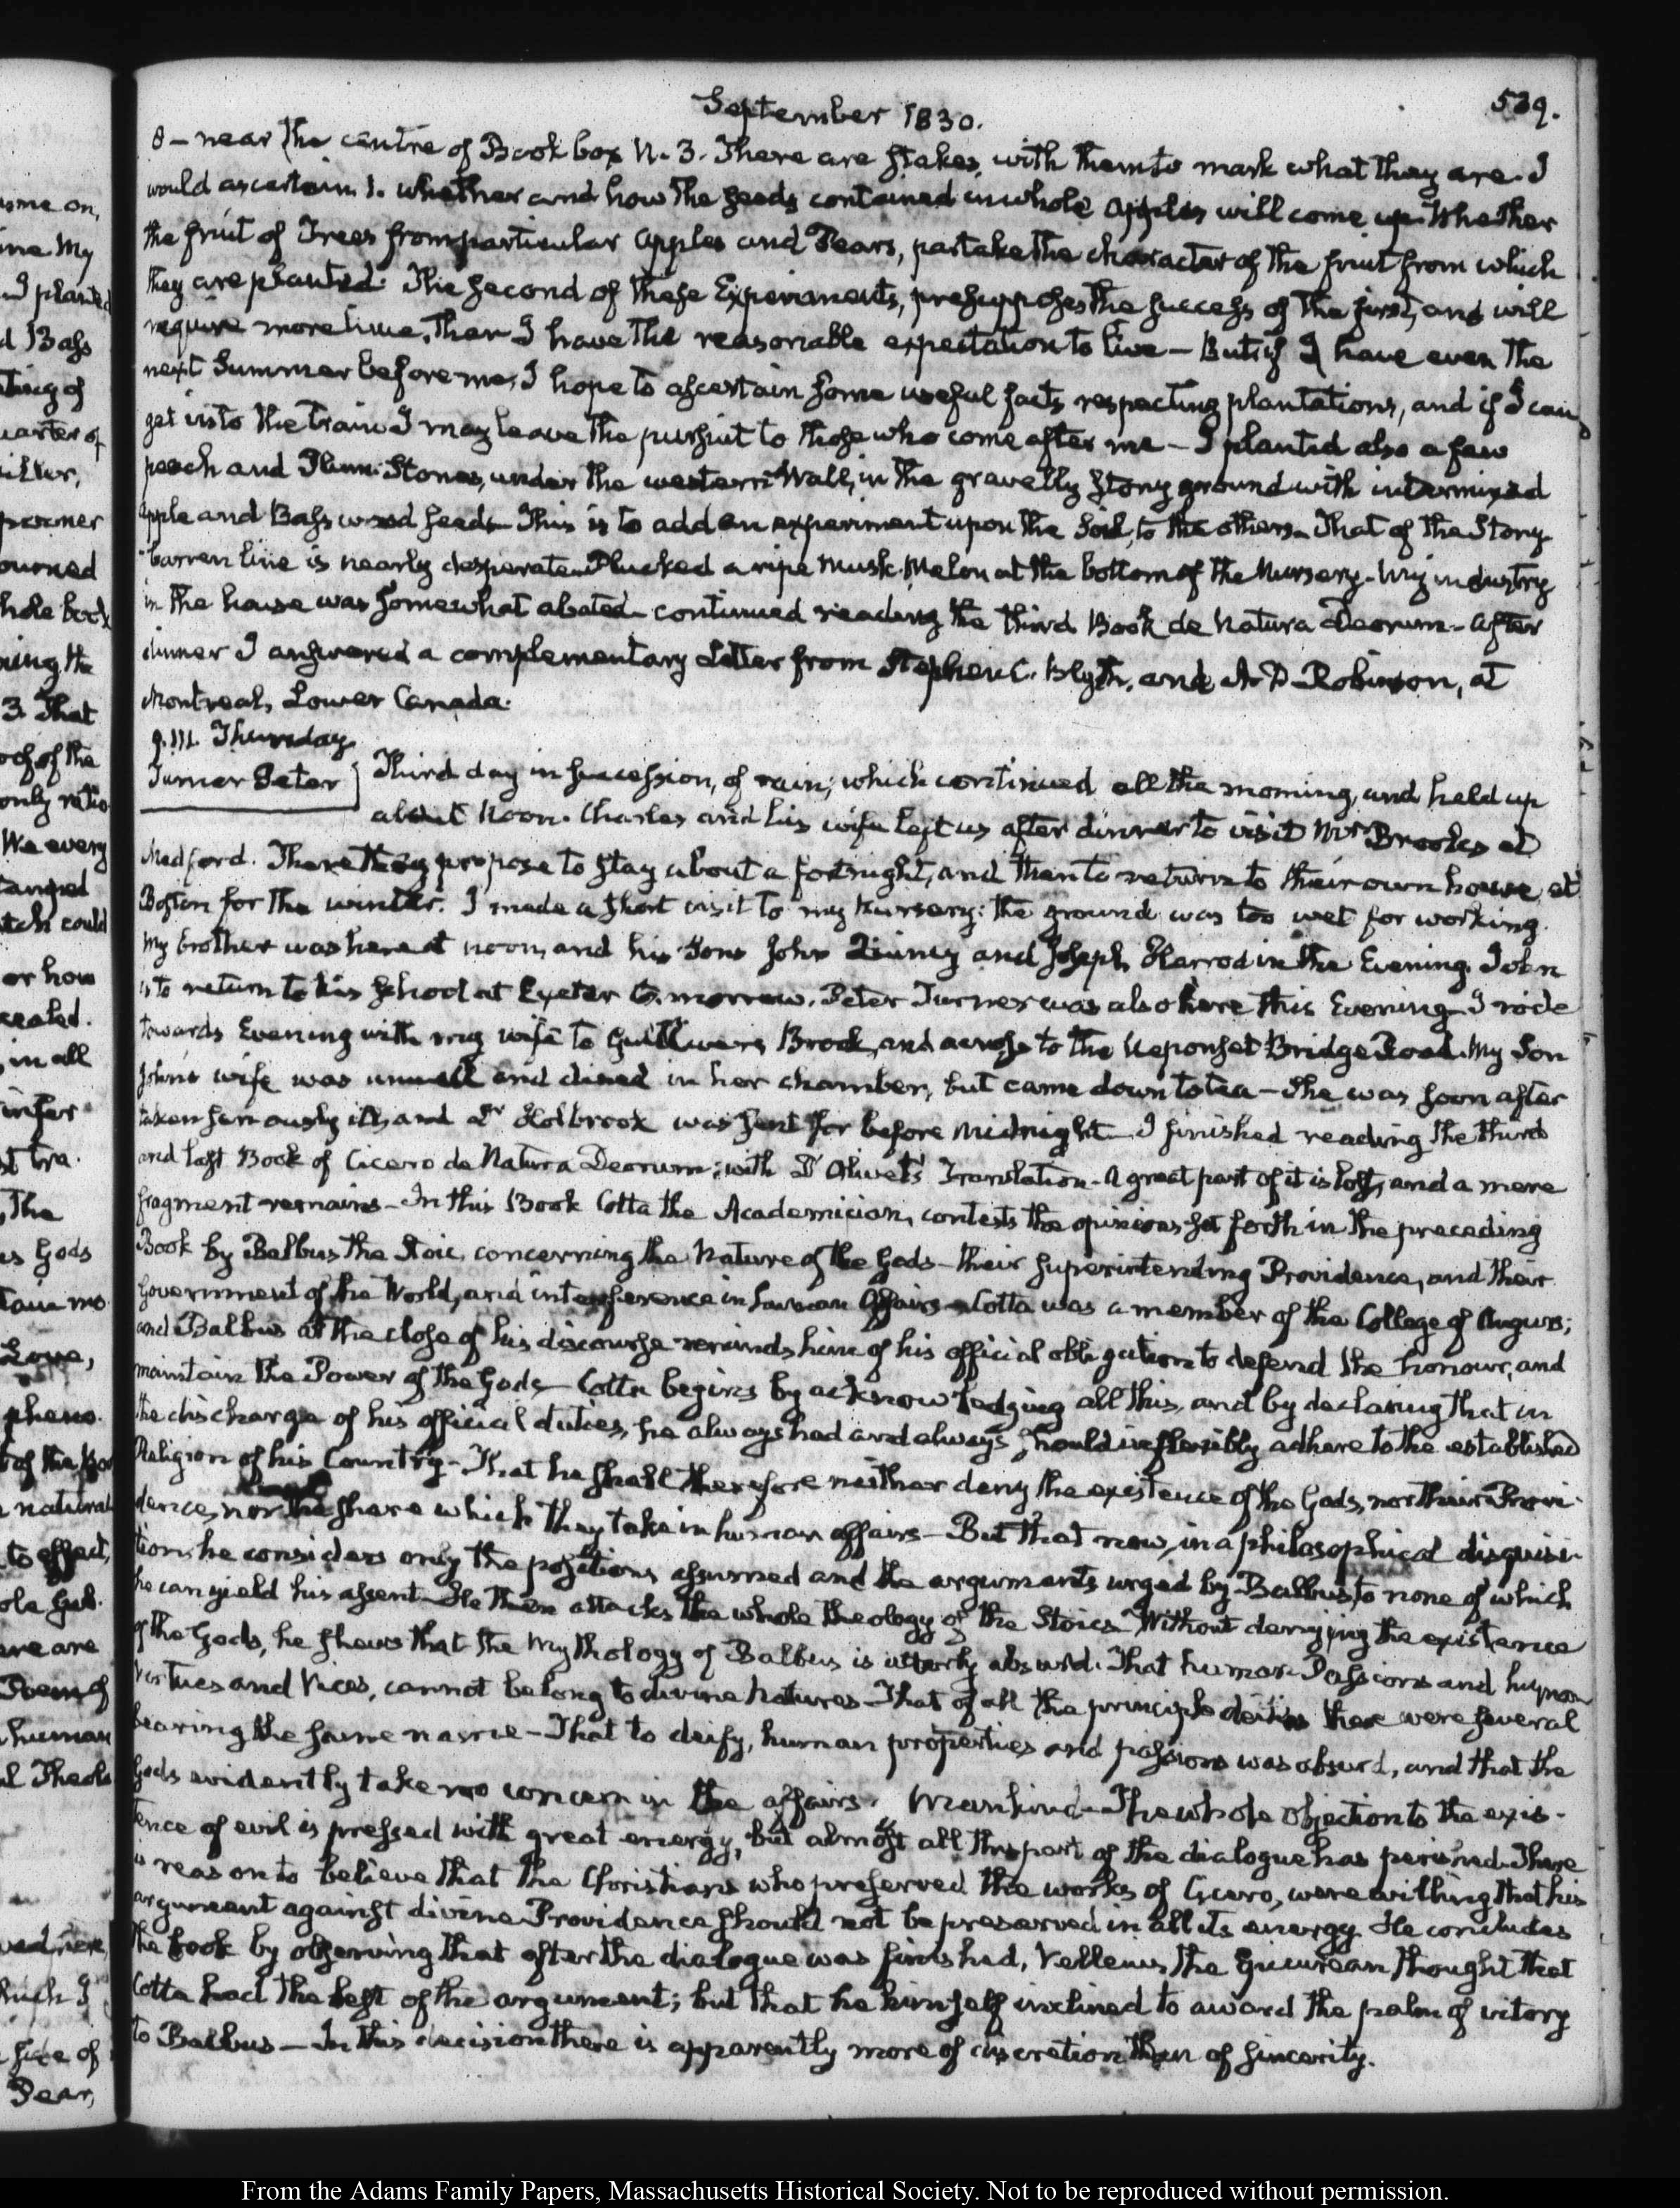 September 1830.
539.
8 – near the centre of Book box N. 3. There are stakes, with them to mark what they are. I
would ascertain 1. whether and how the seeds contained in whole apples will come up. Whether
the fruit of Trees from particular apples and Pears, partake the character of the fruit from which
they are planted. The second of these Experiments, presupposes the success of the first, and will
require more time, than I have the reasonable expectation to live — But if I have even the
next Summer before me, I hope to ascertain some useful facts respecting plantations, and if I can
get into the train I may leave the pursuit to those who come after me — I planted also a few
peach and Plum Stones, under the western Wall, in the gravelly stony ground with intermixed
apple and Bass wood seeds — This is to add an experiment upon the Soil, to the others — That of the Stony
barren line is nearly desperate — Plucked a ripe Musk-Melon at the bottom of the Nursery — My industry
in the house was somewhat abated — continued reading the third Book de Natura Deorum — After
dinner I answered a complementary Letter from Stephen C. Blyth, and A. D. Robinson, at
Montreal, Lower Canada.
9. III. Thursday
Turner Peter
Third day in succession, of rain; which continued all the morning, and held up
about Noon. Charles and his wife left us after dinner to visit Mrs Brooks at
Medford. There they propose to stay about a fortnight, and then to return to their own house at
Boston for the winter. I made a short visit to my Nursery: the ground was too wet for working.
My brother was here at noon, and his Sons John Quincy and Joseph Harrod in the Evening. John
is to return to his School at Exeter to-morrow. Peter Turner was also here this Evening — I rode
towards Evening with my wife to Gulliver's Brook, and across to the Neponset Bridge Road. My Son
John's wife was unwell and dined in her chamber, but came down to tea — She was soon after
taken seriously ill, and Dr Holbrook was sent for before Midnight — I finished reading the third
and last Book of Cicero de Natura Deorum; with D'Olivet's Translation — A great part of it is lost, and a mere
fragment remains — In this Book Cotta the Academician, contests the opinions set forth in the preceding
Book by Balbus the Stoic, concerning the Nature of the Gods — their superintending Providence, and their
Government of the World, and interference in human affairs — Cotta was a member of the College of Augurs;
and Balbus at the close of his discourse reminds him of his official obligation to defend the honour, and
maintain the Power of the Gods — Cotta begins by acknowledging all this, and by declaring that in
the discharge of his official duties, he always had and always should inflexibly adhere to the established
Religion of his Country — That he shall therefore neither deny the existence of the Gods, nor their Provi-
dence, nor the share which they take in human affairs — But that now, in a philosophical disquisi-
tion, he considers only the positions assumed and the arguments urged by Balbus, to none of which
he can yield his assent — He then attacks the whole theology of the Stoics — Without denying the existence
of the Gods, he shews that the Mythology of Balbus is utterly absurd. That human Passions and human
Virtues and Vices, cannot belong to divine Natures — That of all the principle deities there were several
bearing the same name — That to deify, human properties and passions was absurd, and that the
Gods evidently take no concern in the affairs Mankind — The whole objection to the exis-
tence of evil is pressed with great energy, but almost all this part of the dialogue has perished. There
is reason to believe that the Christians who preserved the works of Cicero, were willing that his
argument against divine Providence should not be preserved in all its energy. He concludes
the book by observing that after the dialogue was finished, Velleius, the Epicurean thought that
Cotta had the best of the argument; but that he himself inclined to award the palm of victory
to Balbus — In this decision there is apparently more of discretion than of sincerity.
From the Adams Family Papers, Massachusetts Historical Society. Not to be reproduced without permission.